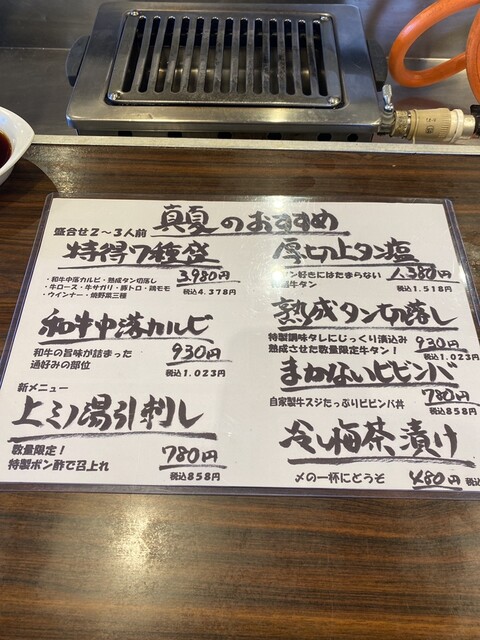 真夏のおすすめ
盛合せ2〜3人前
特得7種盛
3,980円
税込4.378円
・和牛中落カルビ・熟成タン切落し
・牛ロース・牛サガリ・豚トロ・鶏モモ
・ウインナー・焼野菜三種
和牛中落カルビ
930円
税込1.023円
和牛の旨味が詰まった
通好みの部位
新メニュー
上ミノ湯引刺し
780円
税込858円
数量限定!
特製ポン酢で召上れ
厚切上タン塩
1,380円
税込1.518円
ン好きにはたまらない
牛タン
熟成タン切落し
特製調味タレにじっくり漬込み
熟成させた数量限定牛タン!
930円
税込1.023円
まかないビビンバ
780円
税込858円
自家製牛スジたっぷりビビンバ丼
冷し梅茶漬け
〆の一杯にどうぞ
480円
税込